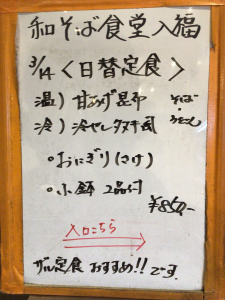 和そば食堂 入福
3/14 <日替定食>
温) 甘あげ昆布 そば
冷) 冷やしタヌキ風 うどん
。おにぎり(さけ)
。小鉢 2品付
¥850-
入口こちら
ザル定食 おすすめ!!です.